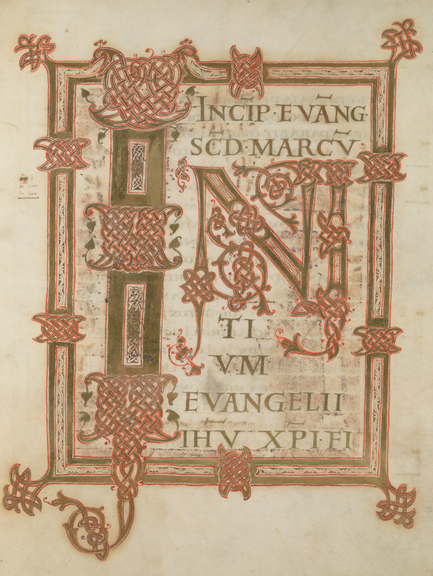 INCIP̄·EVĀNG
SC̄D·MARCV̄
IN
TI
VM
EVANGELII
IHV̄ XPI FI